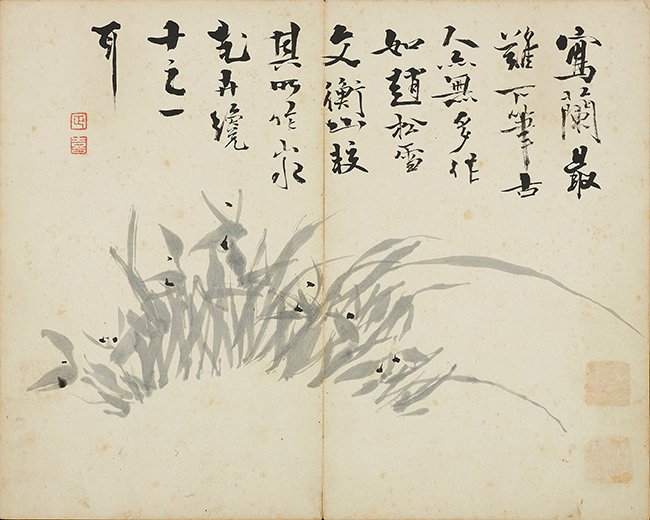 寫蘭最
難下筆古
人亦無多作
如趙松雪
文衡山較
其所作山水
花卉纔
十之一
耳